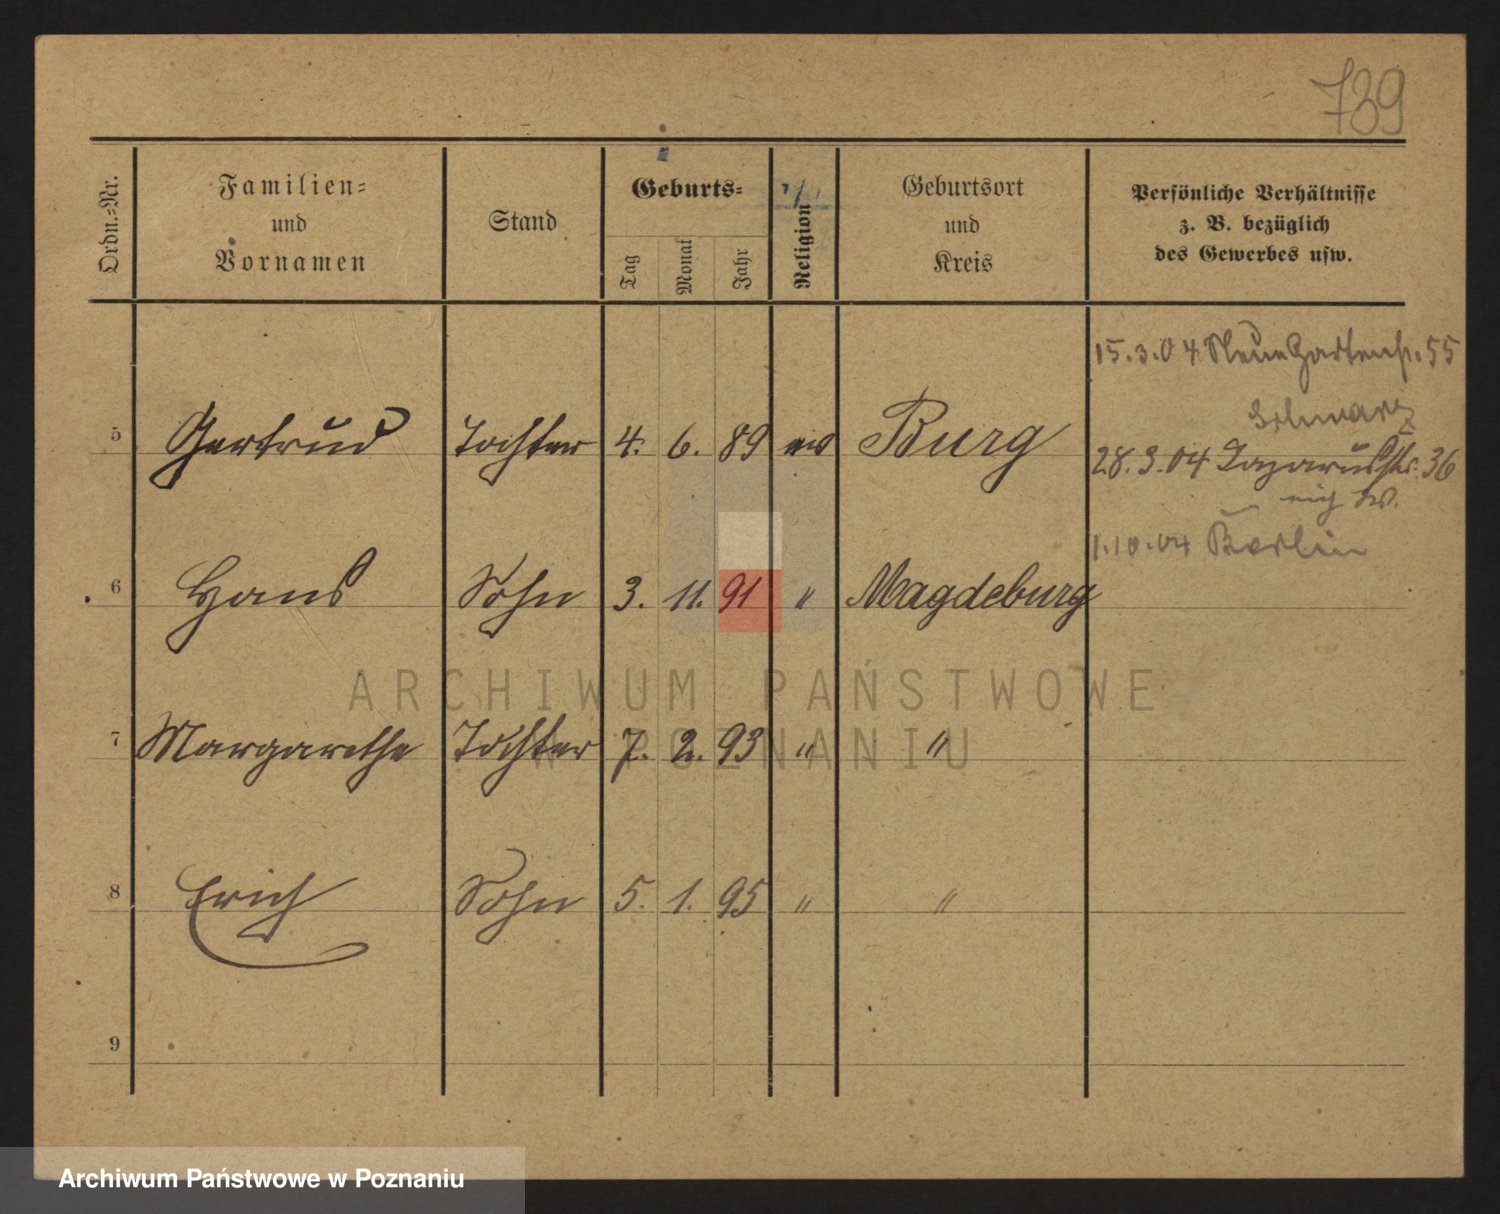 739
Ordn.-Nr.
Familien- und Vornamen
Stand
Geburts-
Tag
Monat
Jahr
Religion
Geburtsort und Kreis
Persönliche Verhältnisse
z. B. bezüglich
des Gewerbes usw.
15.3.04 Neue Gartenstr. 55
Schwarz
5 Gertrud Tochter 4. 6. 89 ev Burg
28.3.04 Lazarusstr. 36
1.10.04 Berlin
6 Hans Sohn 3. 11. 91 " Magdeburg
ARCHIWUM PAŃSTWOWE
W POZNANIU
7 Margarethe Tochter 7. 2. 93 " "
8 Erich Sohn 5. 1. 95 " "
9
Archiwum Państwowe w Poznaniu